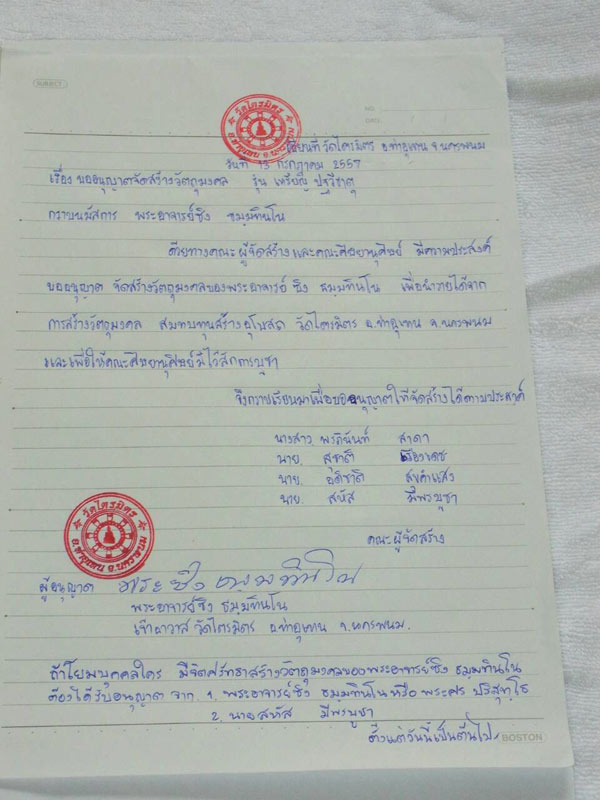 SUBJECT :
NO.
DATE / /
วัดไตรมิตร
อ.ท่าอุเทน จ.นครพนม
เขียนที่ วัดไตรมิตร อ.ท่าอุเทน จ.นครพนม
วันที่ 13 กรกฎาคม 2557
เรื่อง ขออนุญาตจัดสร้างวัตถุมงคล รุ่น เหรียญ ปฐวีธาตุ
กราบนมัสการ พระอาจารย์ซิง ธมฺมทินโน
ด้วยทางคณะผู้จัดสร้างและคณะศิษยานุศิษย์ มีความประสงค์
ขออนุญาต จัดสร้างวัตถุมงคลของพระอาจารย์ ซิง ธมฺมทินโน เพื่อนำรายได้จาก
การสร้างวัตถุมงคล สมทบทุนสร้างอุโบสถ วัดไตรมิตร อ.ท่าอุเทน จ.นครพนม
และเพื่อให้คณะศิษยานุศิษย์มีไว้สักการบูชา
จึงกราบเรียนมาเพื่อขออนุญาตให้จัดสร้างได้ตามประสงค์
นางสาว พรภินันท์ สาดา
นาย. สุชาติ เรืองเดช
นาย. อดิชาติ สุขคำแสง
นาย. สหัส มีพรบูชา
คณะผู้จัดสร้าง
วัดไตรมิตร
อ.ท่าอุเทน จ.นครพนม
ผู้อนุญาต พระซิง ธมฺมทินโน
พระอาจารย์ซิง ธมฺมทินโน
เจ้าอาวาส วัดไตรมิตร อ.ท่าอุเทน จ.นครพนม.
ถ้าโยมบุคคลใคร มีจิตศรัทธาสร้างวัตถุมงคลของพระอาจารย์ซิง ธมฺมทินโน
ต้องได้รับอนุญาต จาก 1. พระอาจารย์ซิง ธมฺมทินโน หรือ พระศร ปริสุทฺโธ
2. นายสหัส มีพรบูชา
ตั้งแต่วันนี้เป็นต้นไป
BOSTON